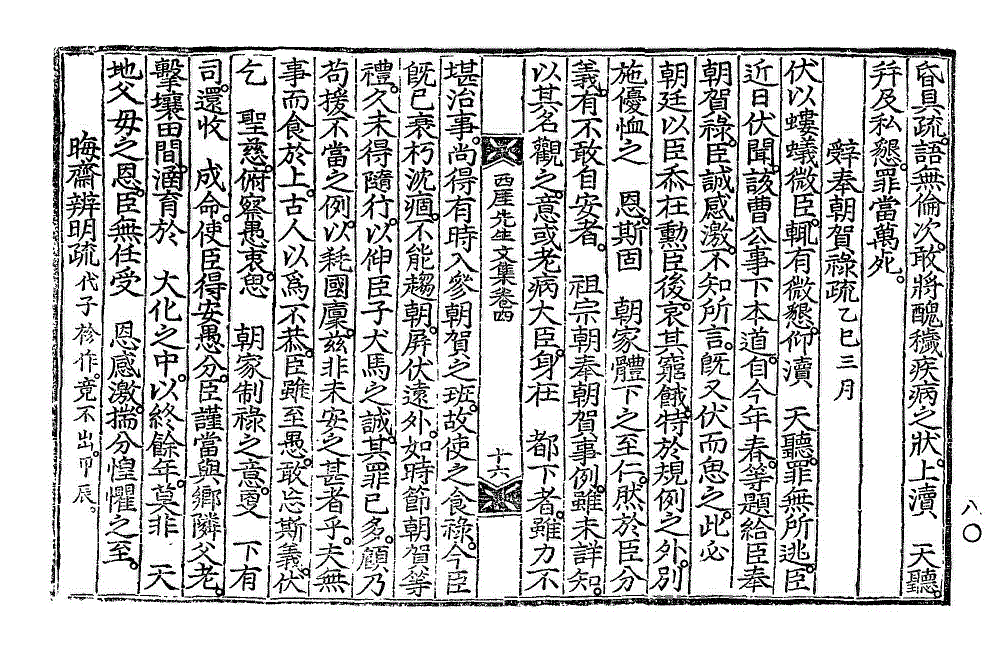 昏具疏。語無倫次。敢將醜穢疾病之狀。上瀆 天聽。
幷及私懇。罪當萬死。
辭奉朝賀祿疏 乙巳三月
伏以螻蟻微臣。輒有微懇。仰瀆 天聽。罪無所逃。臣
近日伏聞。該曹公事下本道。自今年春。等題給臣奉
朝賀祿。臣誠感激。不知所言。旣又伏而思之。此必
朝廷以臣忝在勳臣後。哀其窮餓。特於規例之外。別
施優恤之 恩。斯固 朝家體下之至仁。然於臣分
義。有不敢自安者。 祖宗朝奉朝賀事例。雖未詳知。
以其名觀之。意或老病大臣。身在 都下者。雖力不
西厓先生文集卷四
十六
堪治事。尚得有時入參朝賀之班。故使之食祿。今臣
旣已衰朽沈痼。不能趨朝。屛伏遠外。如時節朝賀等
禮。久未得隨行。以伸臣子犬馬之誠。其罪已多。顧乃
苟援不當之例。以耗國廩。茲非未安之甚者乎。夫無
事而食於上。古人以爲不恭。臣雖至愚。敢忘斯義。伏
乞 聖慈。俯察愚衷。思 朝家制祿之意。更 下有
司。還收 成命。使臣得安愚分。臣謹當與鄕隣父老。
擊壤田間。涵育於 大化之中。以終餘年。莫非 天
地父母之恩。臣無任受 恩感激。揣分惶懼之至。
晦齋辨明疏 代子袗作。竟不出。甲辰。
八〇